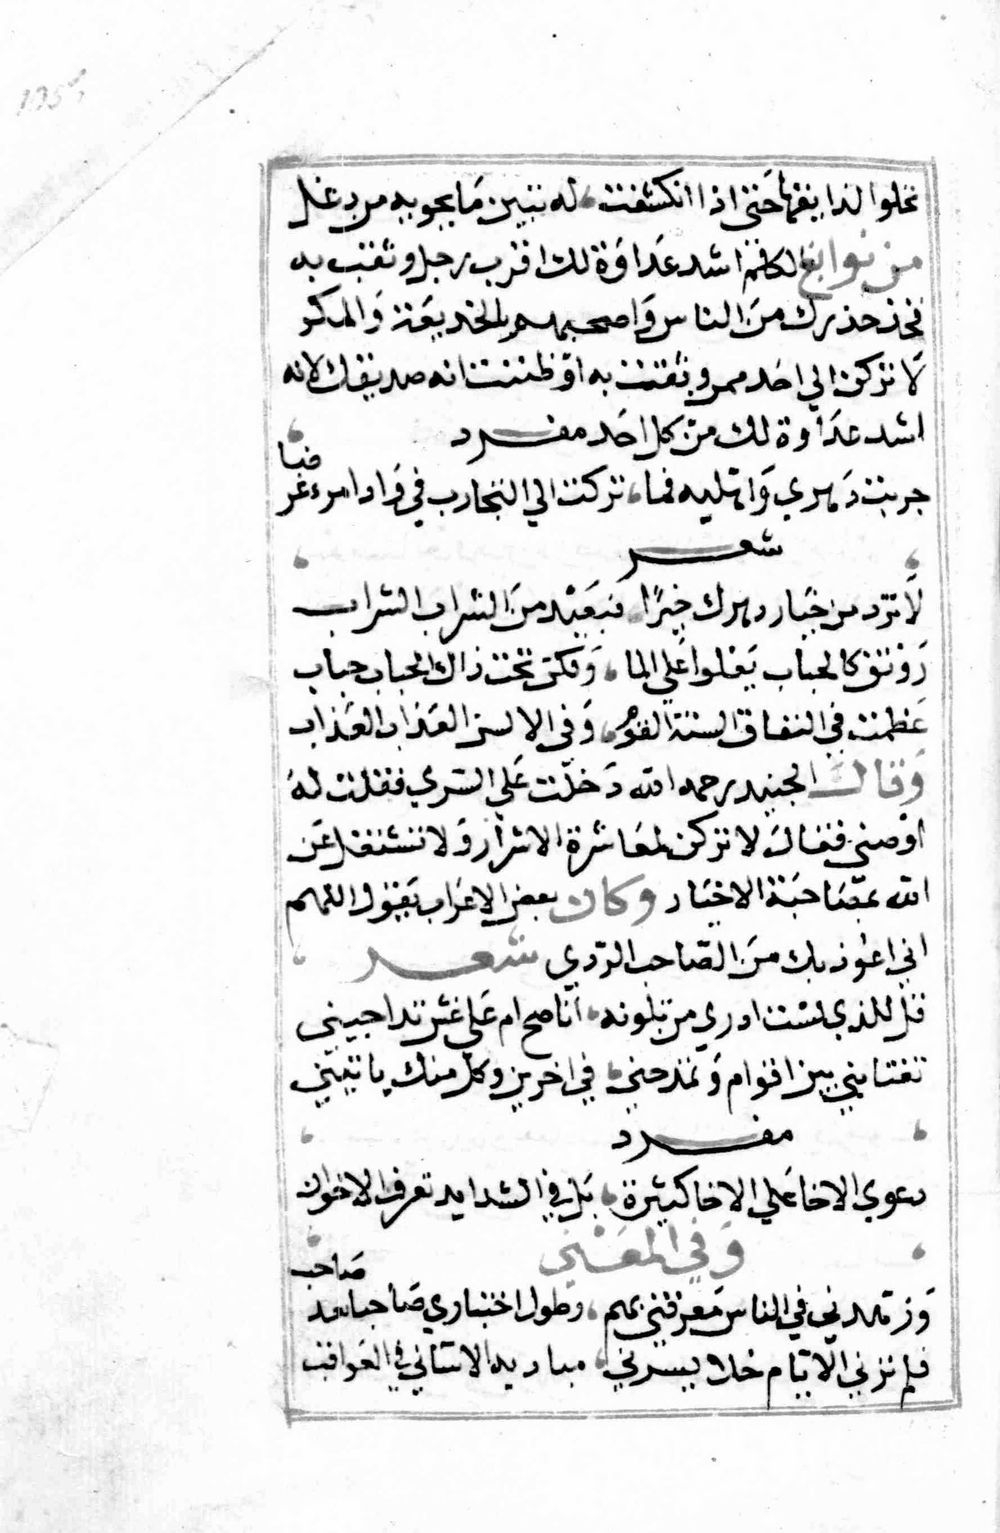 تخلوا لذايقها حتى اذا انكشفت، له تبين ما يحويه من دغل
من نوابغ الكلم اشد عداوة لك اقرب رجل وثقت به
فخذ حذرك من الناس واصحبهم بالخديعة والمكر
لا تركن الي احد ممن وثقت به او ظننت انه صديقك لانه
اشد عداوة لك من كل احد مفرد
جربت دهري واهليه فما، تركت الي التجارب في وداد امرء غرضا
شعر
لا ترد من خيار دهرك خيرا، فبعيد من الشراب الشراب
رونق كالحباب يعلوا علي الما، ولكن تحت ذاك الحباب حباب
عظمت في النفاق السنة القوم، وفي الالسن العذاب العذاب
وقال الجنيد رحمه الله دخلت علي السري فقلت له
اوصني فقال لا تركن لمعاشرة الاشرار ولا تشتغل عن
الله بمصاحبة الاخيار وكان بعض الاعراب يقول اللهم
اني اعوذ بك من الصاحب الردي شعر
قل للذي لست ادري من تلونه، اناصح ام علي غش تداجيني
تغتابني بين اقوام وتمدحني، في اخرين وكل منك ياتيني
مفرد
دعوي الاخا علي الاخا كثيرة، بل في الشدايد تعرف الاخوان
وفي المعني
وزهدني في الناس معرفتي بهم، وطول اختباري صاحبا بعد صاحب
فلم ترني الايام خلا يسرني، مباديه الا ساني في العواقب